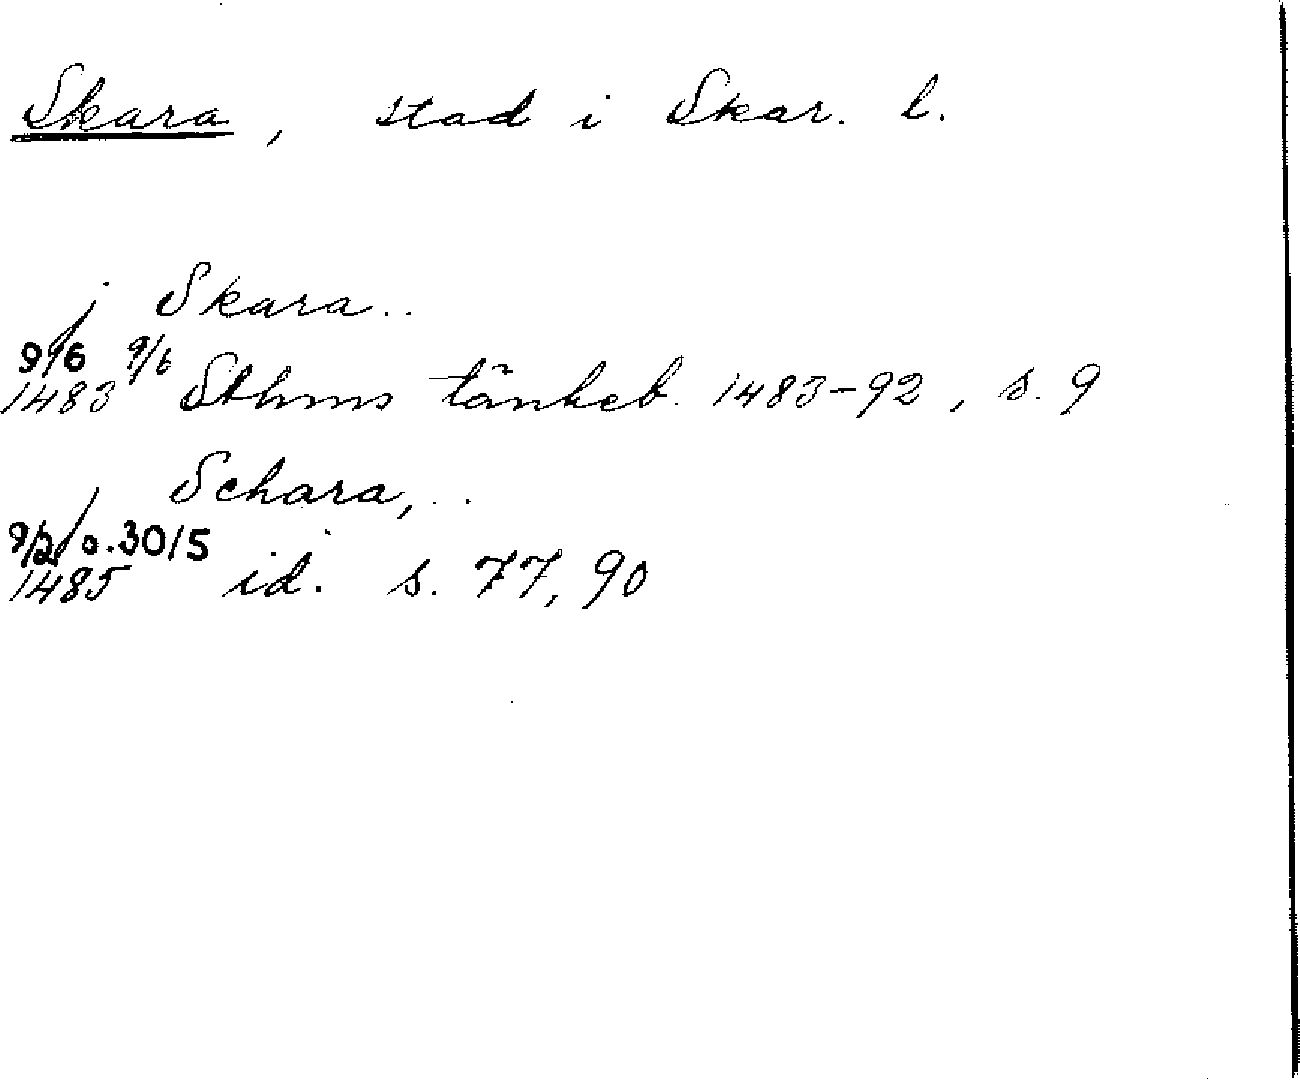 Skara, stad i Skar. l.
j Skara..
9/6 9/6
1483 Sthms tänkeb. 1483-92, s. 9
j Schara,..
9/2 o. 30/5
1485 id. s. 77, 90